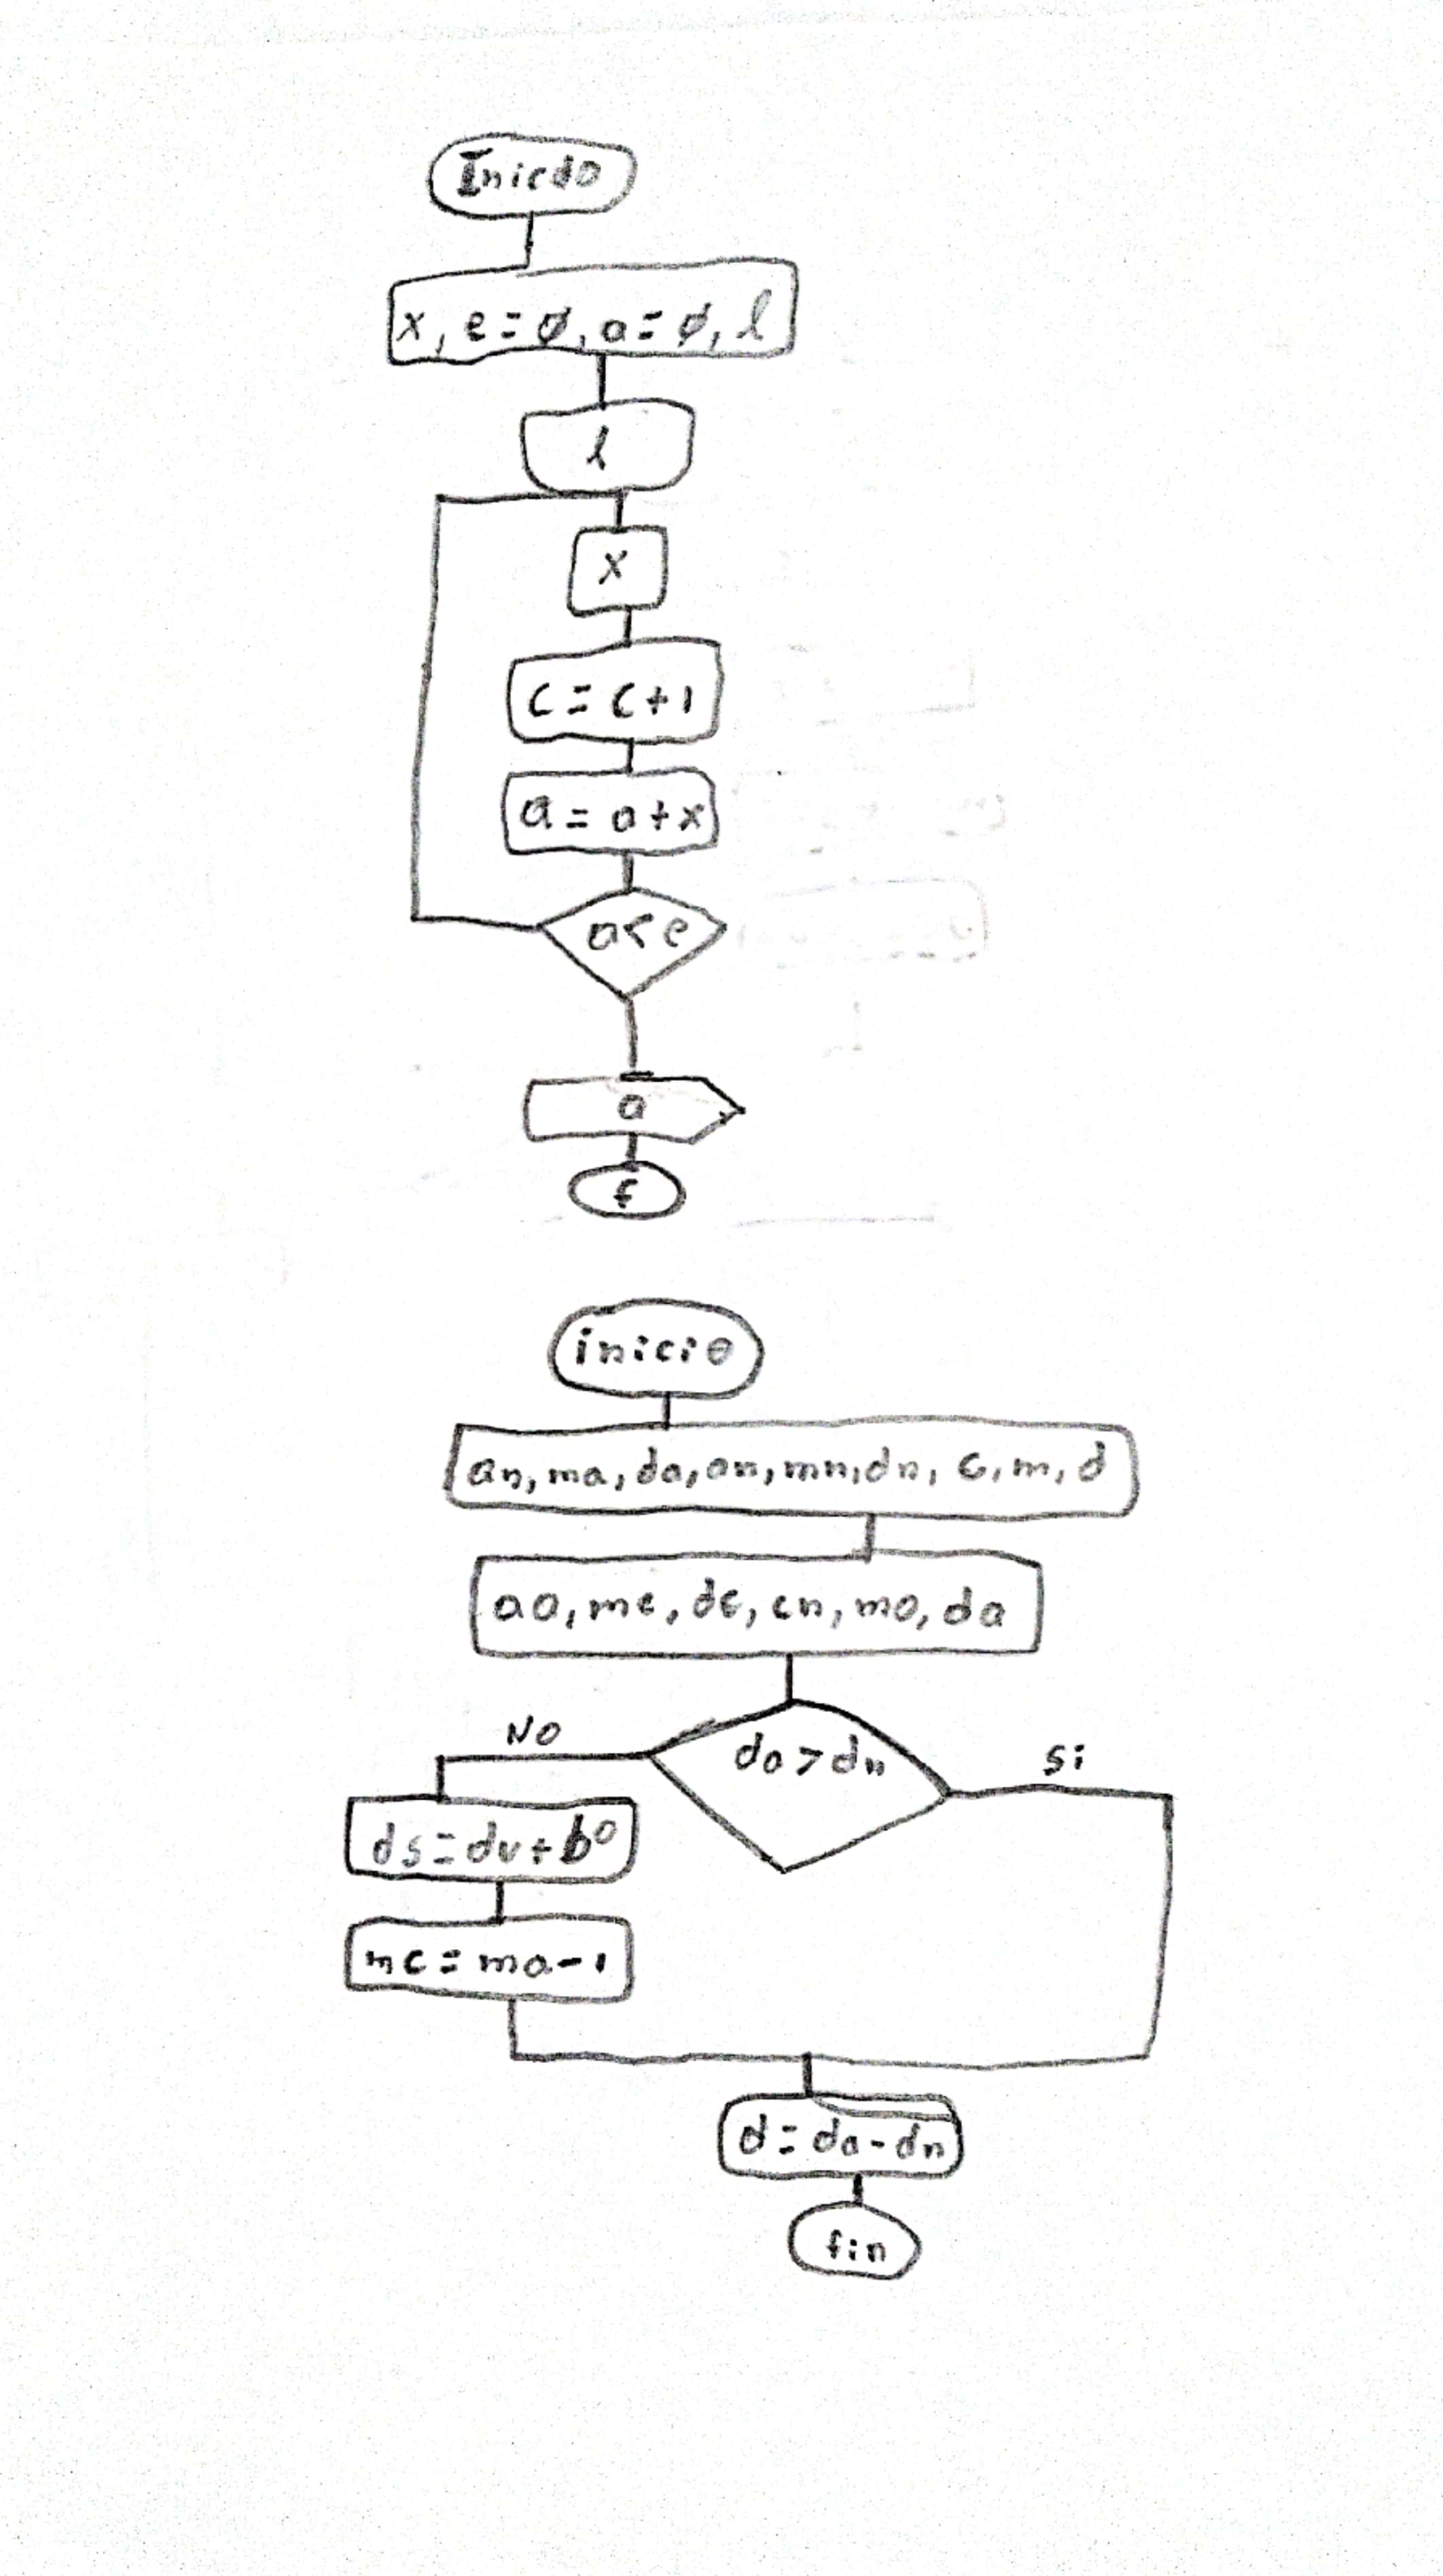 Inicio
x, e = ø, a = ø, l
l
x
c = c + 1
a = a + x
a < e
a
f
inicio
an, ma, da, an, mn, dn, c, m, d
aa, me, de, en, mo, da
da > dn
NO
Si
ds = dv + b⁰
mc = ma - 1
d = da - dn
fin